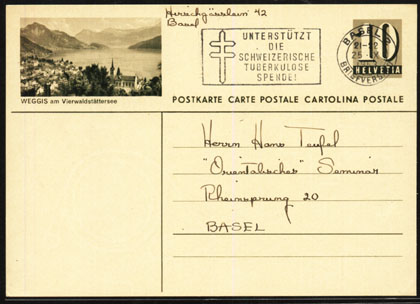 42
Basel
UNTERSTÜTZT
DIE
SCHWEIZERISCHE
TUBERKULOSE
SPENDE!
BASEL 2
21-22
BRIEFVERS.
10
HELVETIA
WEGGIS am Vierwaldstättersee
POSTKARTE CARTE POSTALE CARTOLINA POSTALE
Herrn Hans Teufel
"Orientalisches" Seminar
Rheinsprung 20
BASEL